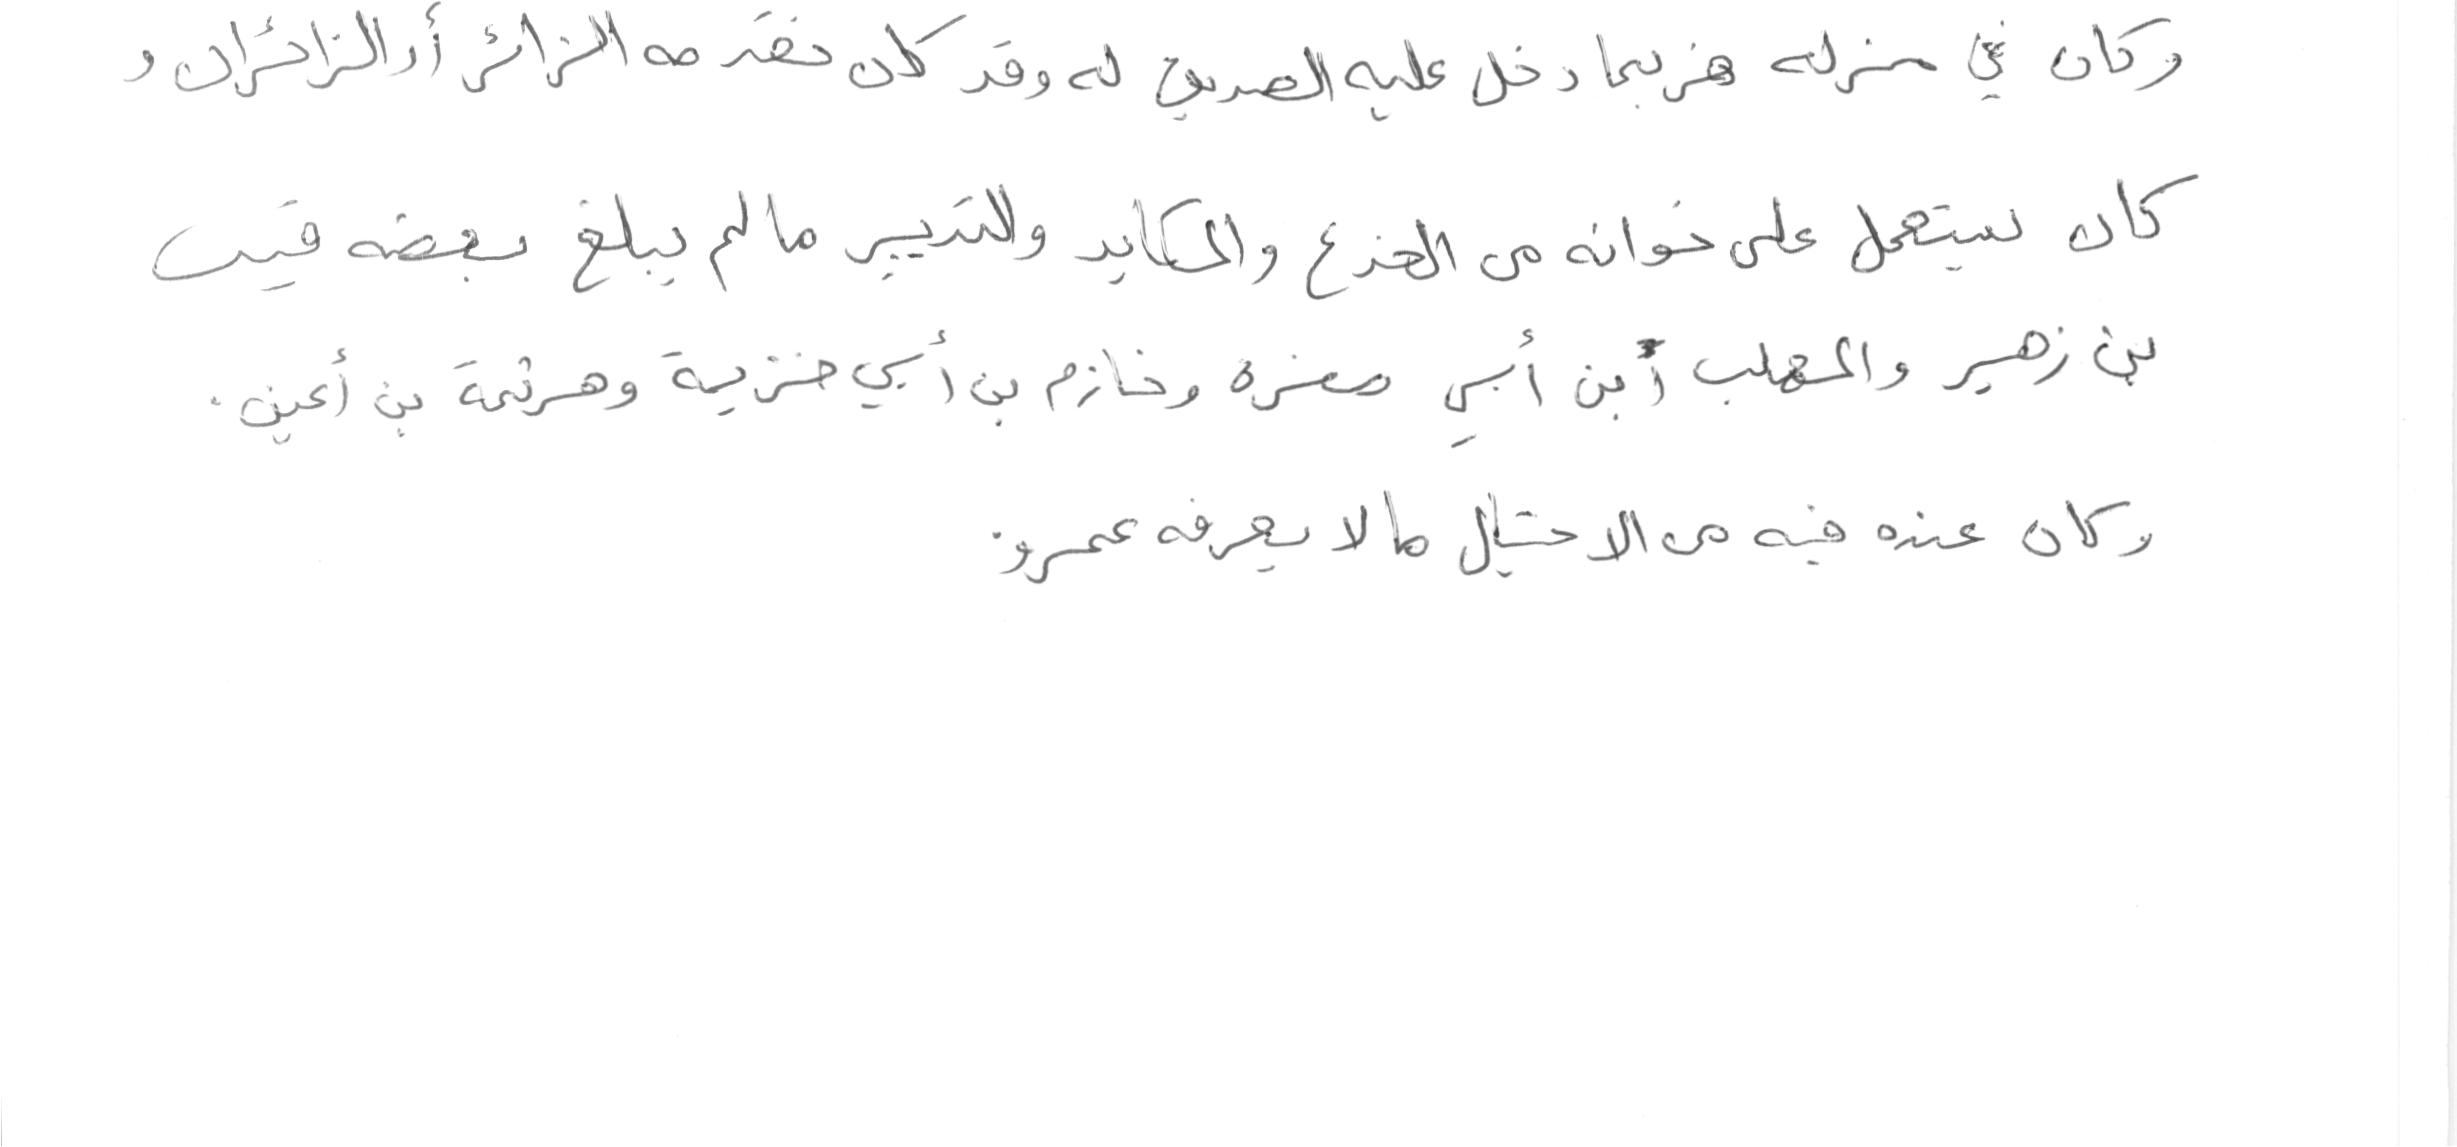 وكان في منزله فربما دخل عليه الصديق له وقد كان تقدمه الزائر أو الزائران و
كان يستعمل على خوانه من الخدع والمكايد والتدبير ما لم يبلغ بعضه قيس
بن زهير والمهلب أبن أبي صفرة وخازم بن أبي خزيمة وهرثمة بن أعين.
وكان عنده فيه من الاحتيال ما لا يعرفه عمرو.